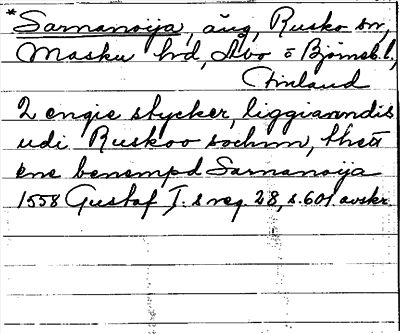 * Sarnanoija, äng, Rusko sn,
Masku hd, Åbo o Björneb. l,
Finland
2 engie stycker, liggianndis
udi Ruskoo sochnn, thett
ene benempd Sarnanoija
1558 Gustaf I. s reg. 28, s. 601 avskr.